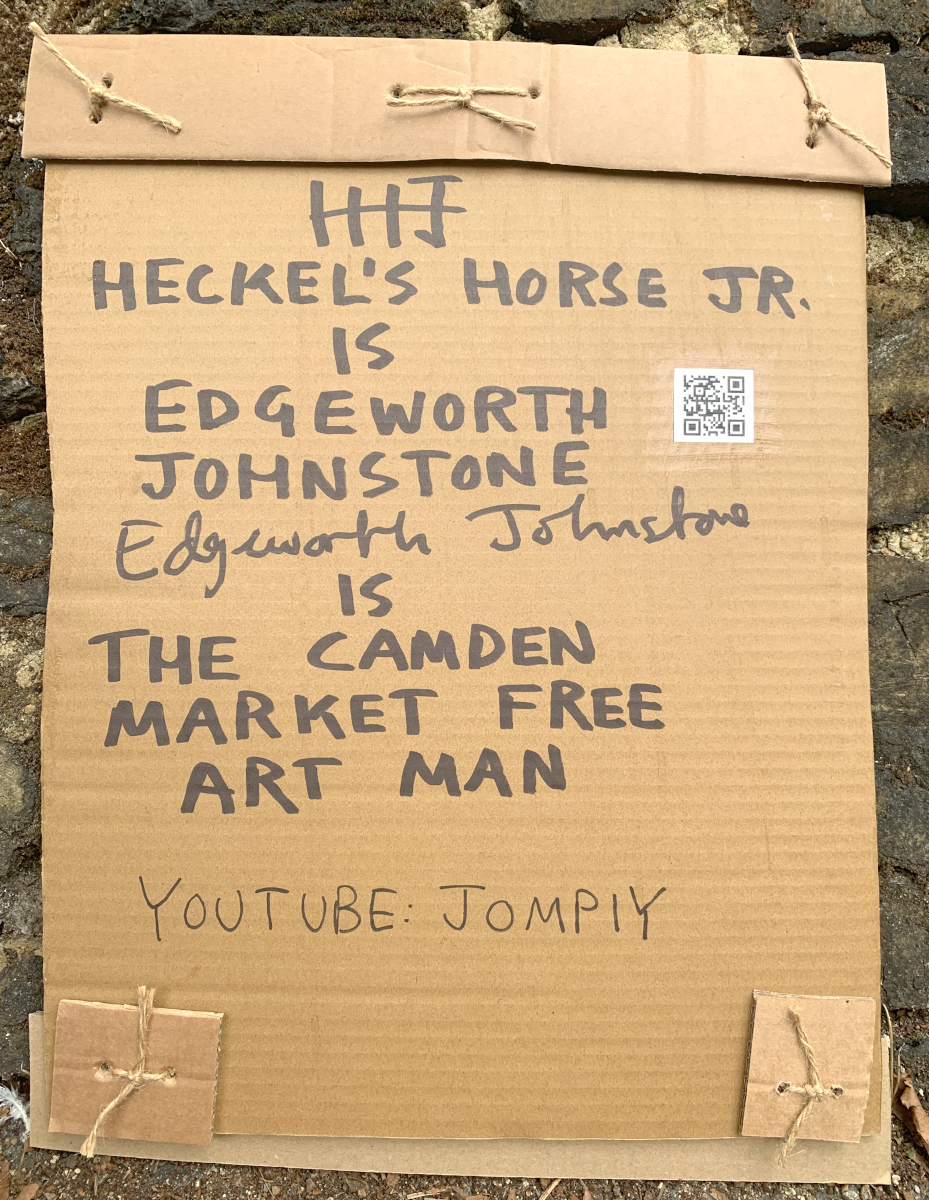 HHJ
HECKEL'S HORSE JR.
IS
EDGEWORTH
JOHNSTONE
Edgeworth Johnstone
IS
THE CAMDEN
MARKET FREE
ART MAN
YOUTUBE: JOMPIY